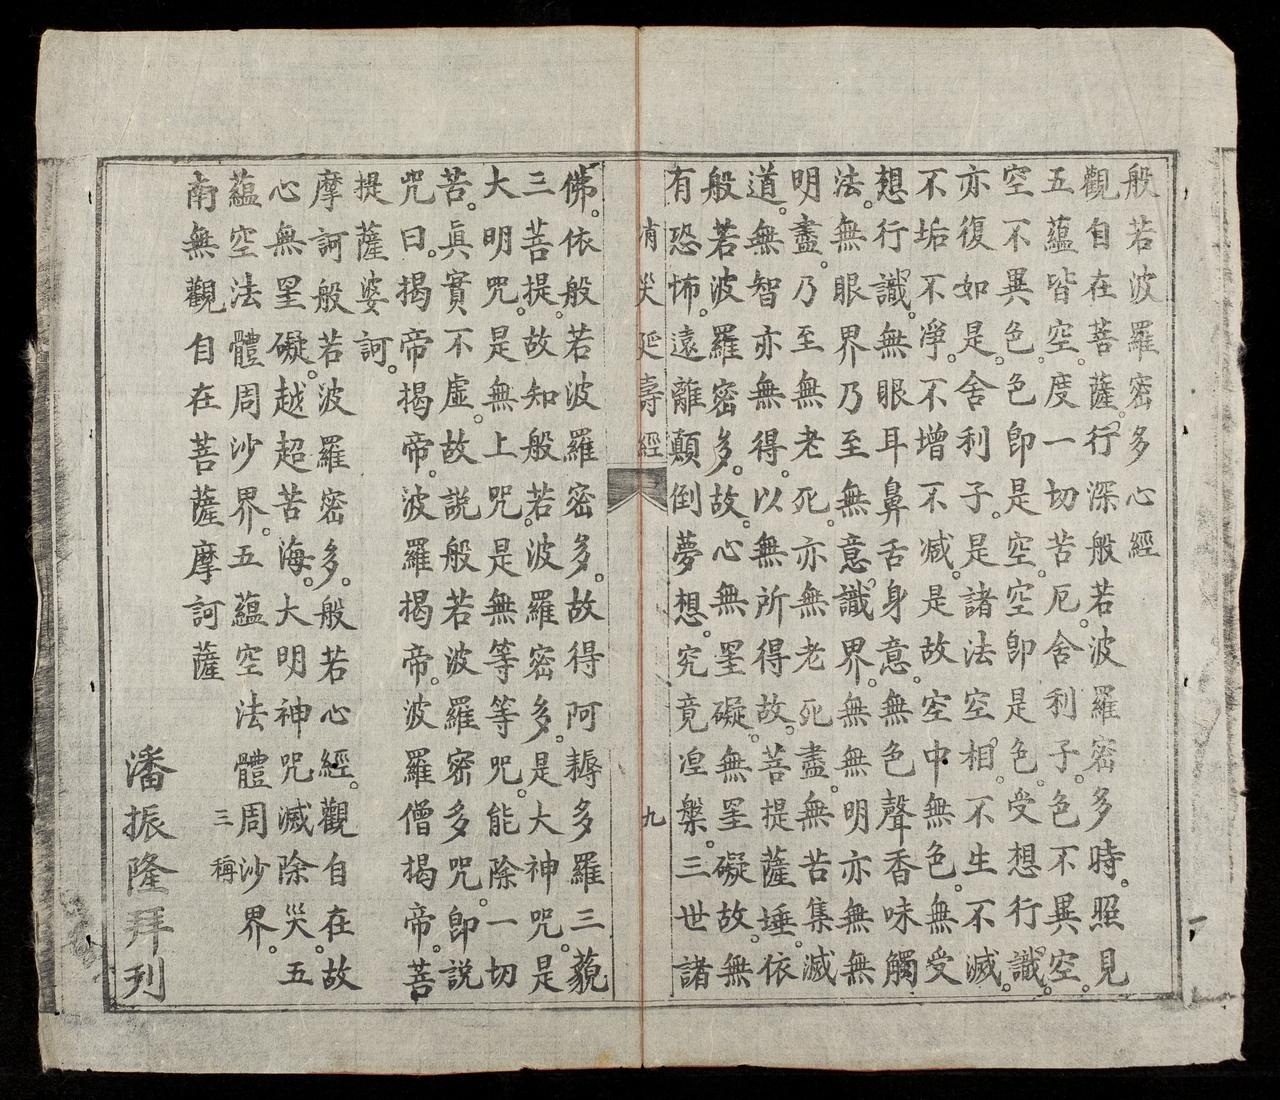 般若波羅密多心經
觀自在菩薩。行深般若波羅密多時。照見
五蘊皆空。度一切苦厄。舍利子。色不異空。
空不異色。色即是空。空即是色。受想行識。
亦復如是。舍利子。是諸法空相。不生不滅。
不垢不淨。不增不減。是故空中無色。無受
想行識。無眼耳鼻舌身意。無色聲香味觸
法。無眼界乃至無意識界。無無明亦無無
明盡。乃至無老死。亦無老死盡。無苦集滅
道。無智亦無得。以無所得故。菩提薩埵。依
般若波羅密多。故。心無罣礙。無罣礙故。無
有恐怖。遠離顛倒夢想。究竟涅槃。三世諸
消災延壽經 九
佛。依般若波羅密多。故得阿耨多羅三藐
三菩提。故知般若波羅密多。是大神咒。是
大明咒。是無上咒。是無等等咒。能除一切
苦。眞實不虛。故説般若波羅密多咒。即説
咒曰。揭帝揭帝。波羅揭帝。波羅僧揭帝。菩
提薩婆訶。
摩訶般若波羅密多。般若心經。觀自在故
心無罣礙。越超苦海。大明神咒滅除災。五
蘊空法體周沙界。五蘊空法體周沙界。
南無觀自在菩薩摩訶薩 三稱
潘振隆拜列